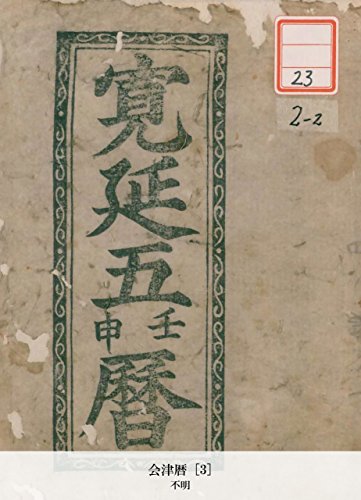 寛延五
壬申
暦
23
2-2
会津暦 [3]
不明